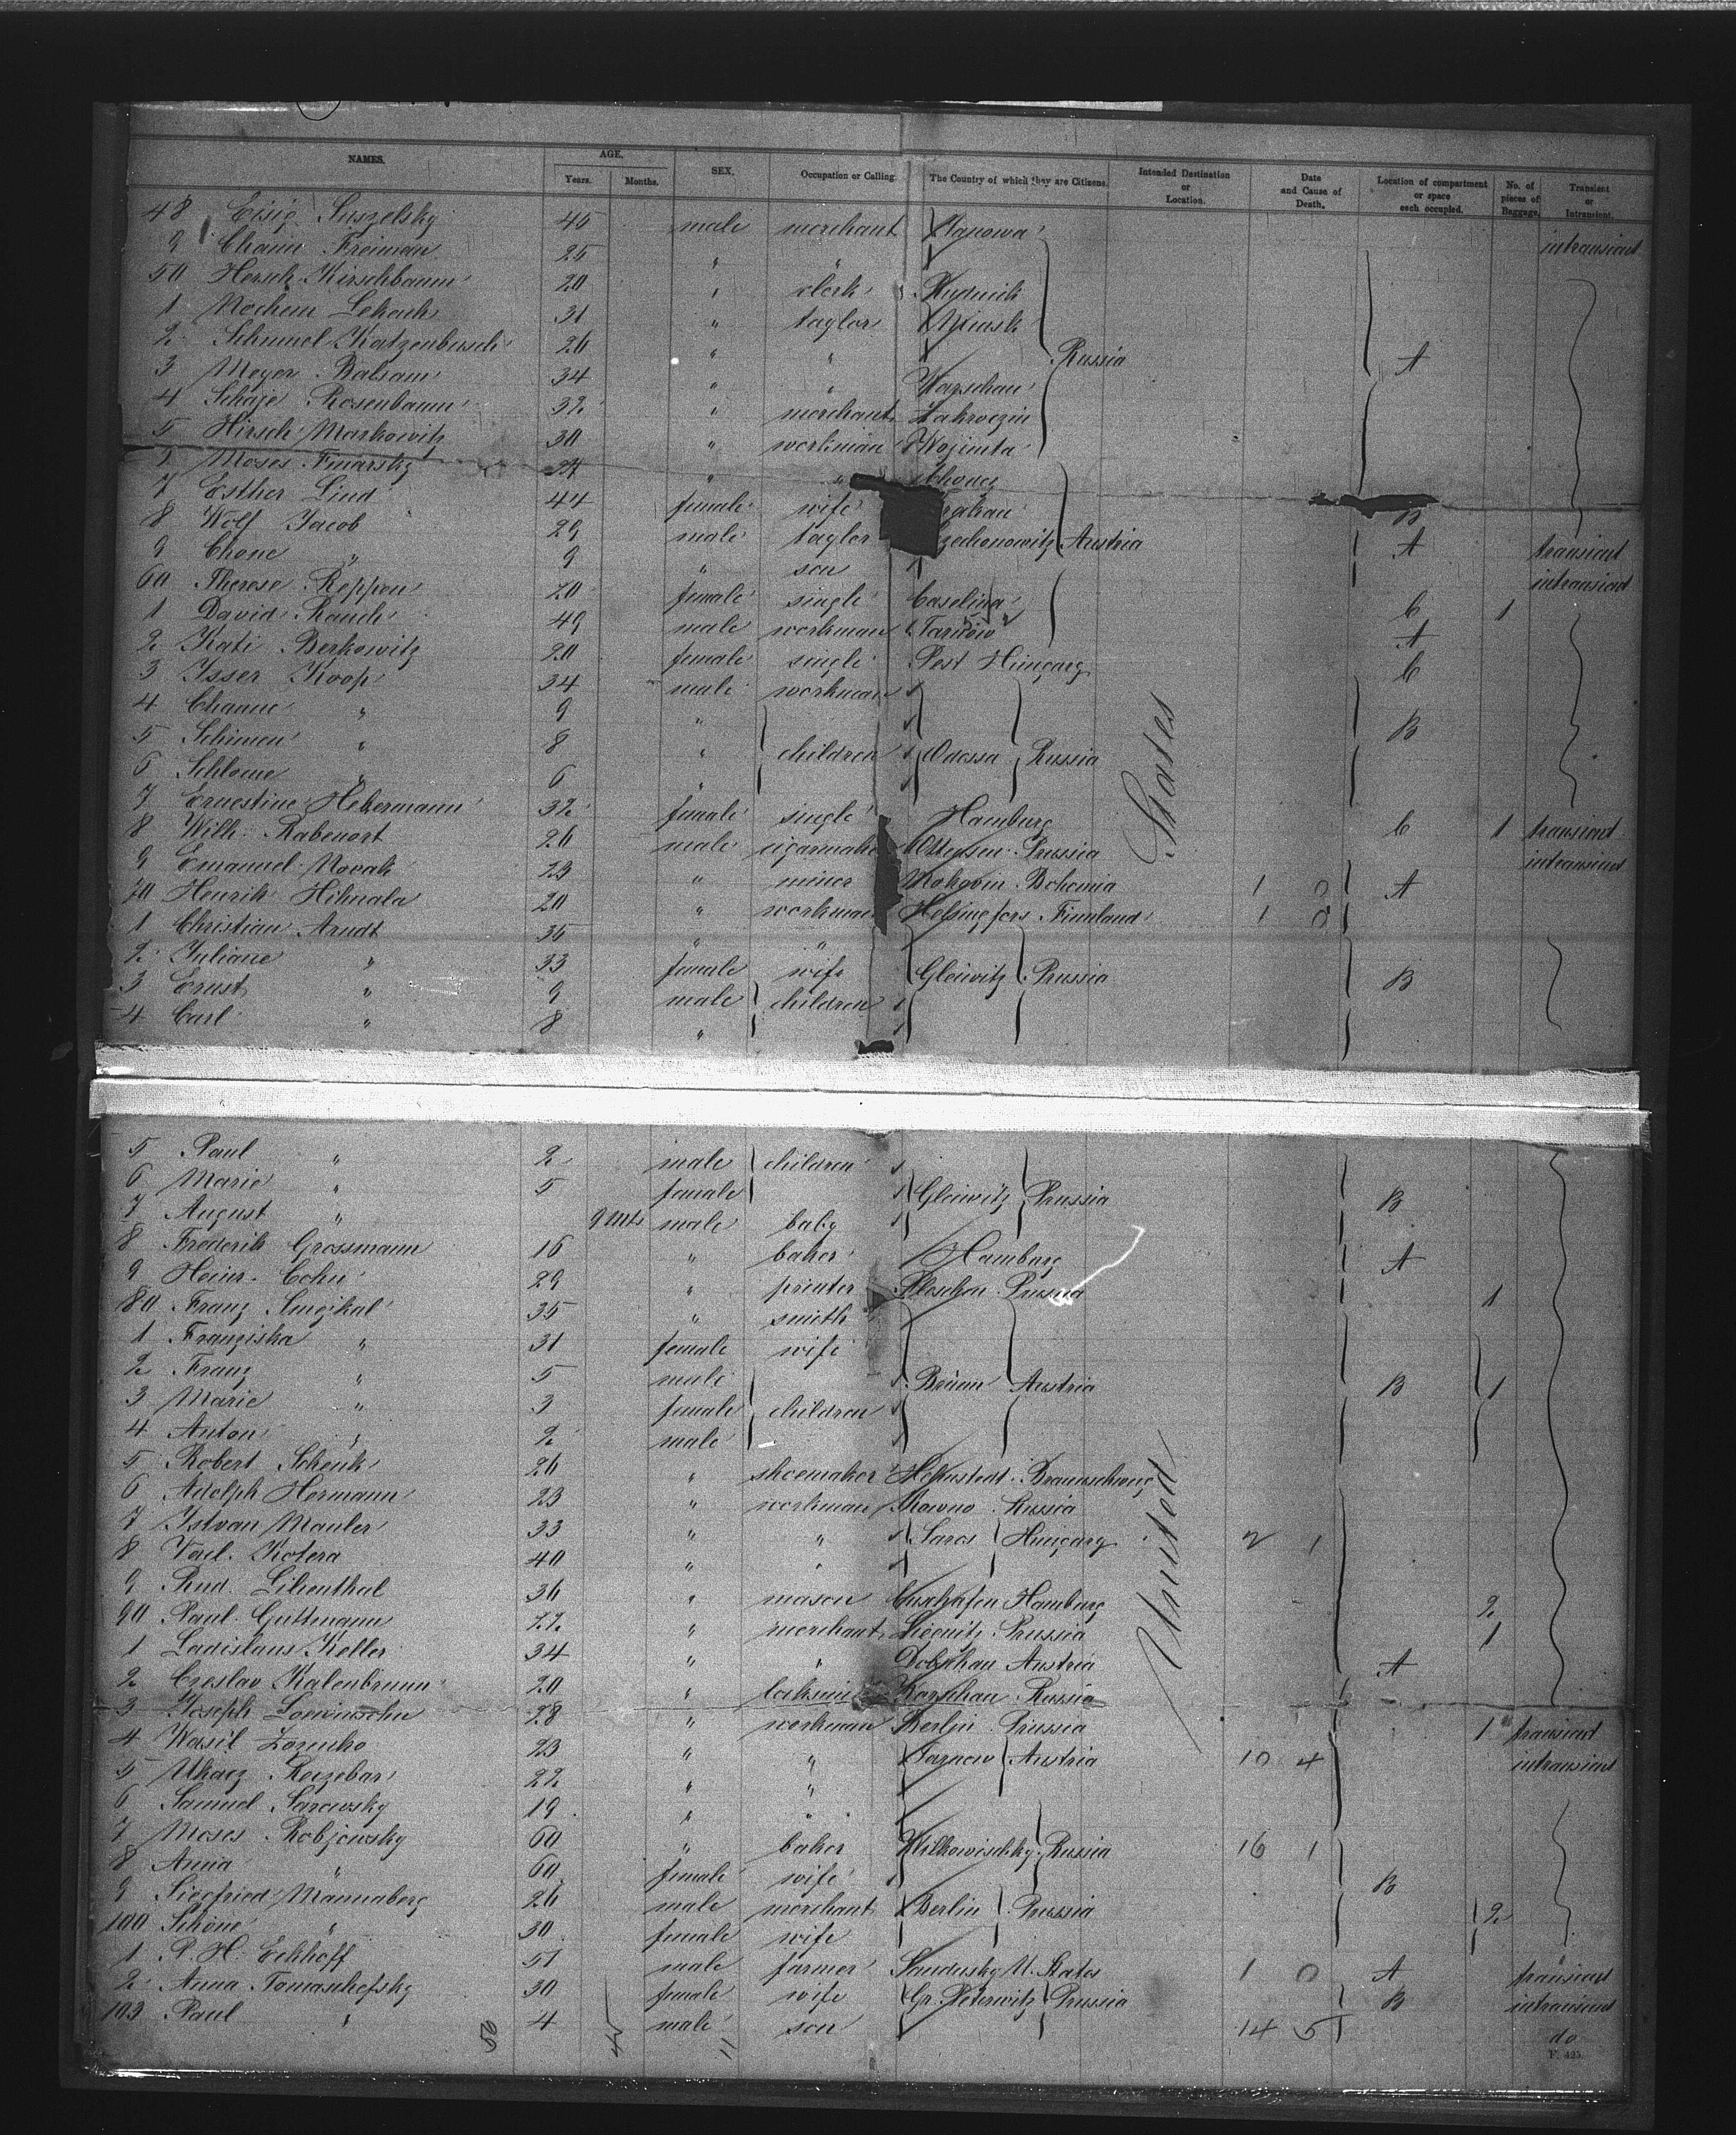 NAMES. AGE. SEX. Occupation or Calling. The Country of which they are Citizens. Intended Destination or Location. Date and Cause of Death. Location of compartment or space each occupied. No. of pieces of Baggage. Transient or Intransient.
Years. Months.
48 Eisig Suszelsky 45 male merchant Janowa intransient
9 Chaim Freiman 25 " "
50 Hersch Kirschbaum 20 " clerk
1 Nochem 31 " taylor Minsk
2 Schmuel Katzenbusch 26 " " Russia A
3 Meyer Balsam 34 " " Warschau
4 Schaje Rosenbaum 32 " merchant Zakroczin
5 Hirsch Markowitz 30 " workman
Moses " "
7 Esther Lind 44 female wife B
8 Wolf Jacob 29 male taylor Austria A transient
9 Chane " 9 " son intransient
60 Therese Reppen 20 female single C 1
1 David Rauch 49 male workman Tarnow A
2 Kati Berkowitz 20 female single Pest Hungary C
3 Isser Koop 34 male workman
4 Channe " 9 "
5 Schimen " 8 " children Odessa Russia B
6 Schlome " 6 "
7 Ernestine Hebermann 32 female single Hamburg C 1 transient
8 Wilh. Rabenort 26 male cigarmaker Ottensen Prussia intransient
9 Emanuel Novak 23 " miner Bohemia 1 0 A
70 Henrik Hihnala 20 " workman Helsingfors Finnland 1 0
1 Christian Arndt 35 " "
2 Juliane " 33 female wife Gleiwitz Prussia B
3 Ernst " 9 male children
4 Carl " 8 "
States
5 Paul " 2 male children
6 Marie " 5 female Gleiwitz Prussia B
7 August " 9 Mts male baby
8 Frederik Grossmann 16 " baker Hamburg A
9 Heinr. Cohn 29 " printer Pleschen Prussia 1
80 Franz Smejkal 35 " smith
1 Franziska " 31 female wife
2 Franz " 5 male Brünn Austria B 1
3 Marie " 3 female children
4 Anton " 2 male
5 Robert Schenk 26 " shoemaker Helmstedt Braunschweig
6 Adolph Hermann 23 " workman Kowno Russia
7 Istvan Mauler 33 " " Saros Hungary 2 1
8 Vacl. Kotera 40 " "
9 Rud. Lilienthal 36 " mason Cuxhafen Hamburg 2
90 Paul Guttmann 22 " merchant Liegnitz Prussia 1
1 Ladislaus Keller 34 " " Dobschau Austria A
2 Creslav Kalenbrunn 20 " Warschau Russia
3 Joseph Loewinsohn 28 " workman Berlin Prussia 1 transient
4 Wasil Zozenko 23 " " Tarnow Austria 10 4 intransient
5 22 " "
6 Samuel Sarowsky 19 " "
7 Moses Robjewsky 60 " baker Wilkowischky Russia 16 1
8 Anna " 60 female wife B
9 Siegfried Mannaberg 26 male merchant Berlin Prussia 2
100 Schöne " 30 female wife
1 P. H. Eckhoff 51 male farmer Sandusky U. States 1 0 A transient
2 Anna Tomaschefsky 30 female wife Gr. Peterwitz Prussia B intransient
103 Paul " 4 male son 14 5 do
United
F. 425.